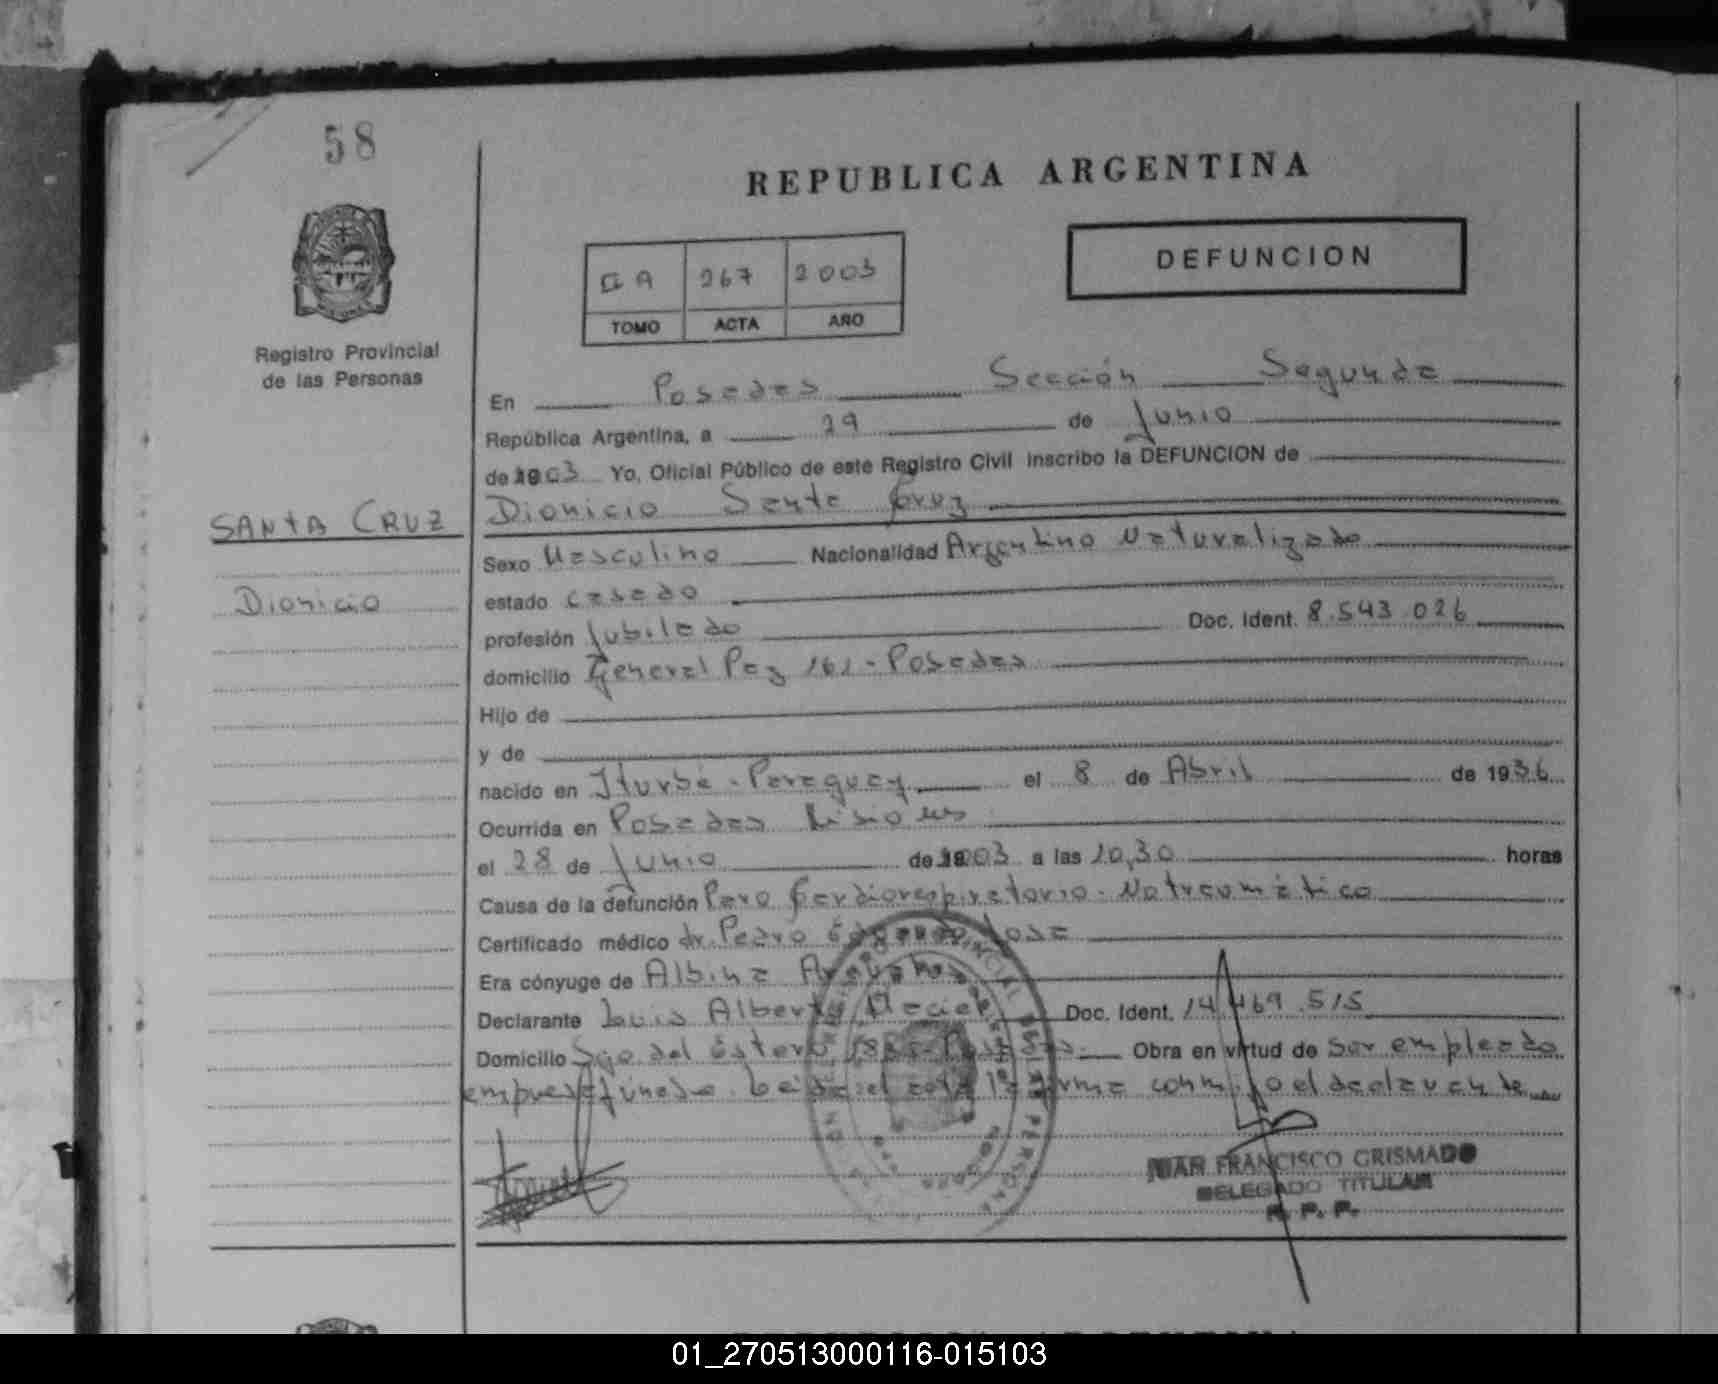 58
REPUBLICA ARGENTINA
DEFUNCION
II A 267 2003
TOMO ACTA AÑO
Registro Provincial
de las Personas
En Posadas Sección Segunda
República Argentina, a 29 de Junio
de 2003 Yo, Oficial Público de este Registro Civil inscribo la DEFUNCION de
SANTA CRUZ
Dionicio Santa Cruz
Sexo Masculino Nacionalidad Argentino Naturalizado
Dionicio
estado casado
profesión Jubilado Doc. Ident. 8.543.026
domicilio General Paz 161 - Posadas
Hijo de
y de
nacido en Iturbé - Paraguay el 8 de Abril de 1936
Ocurrida en Posadas Misiones
el 28 de Junio de 2003 a las 10,30 horas
Causa de la defunción Paro Cardiorespiratorio - No traumático
Certificado médico dr. Pedro Sosa
Era cónyuge de Albina
Declarante Luis Alberto Maciel Doc. Ident. 14.469.515
Domicilio Sgo. del Estero Posadas Obra en virtud de ser empleado
empresa funebre. Leida el acta la firma conmigo el declarante
JUAN FRANCISCO GRISMADO
DELEGADO TITULAR
R. P. P.
01_270513000116-015103